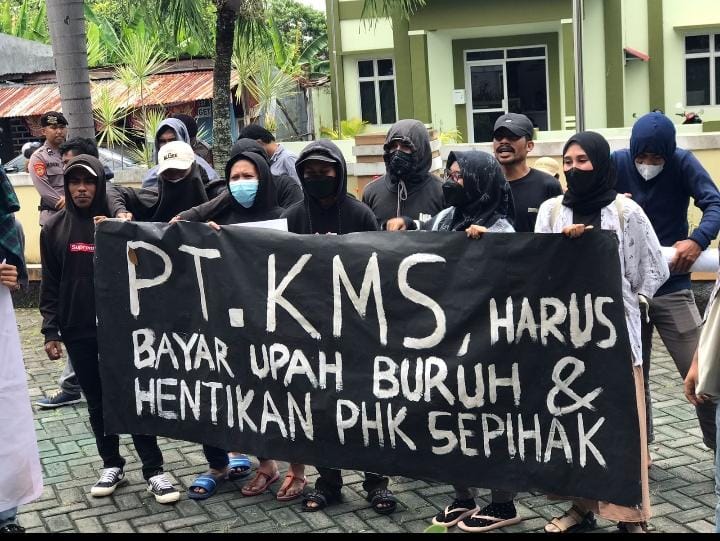 PT. KMS, HARUS
BAYAR UPAH BURUH &
HENTIKAN PHK SEPIHAK
Supreme